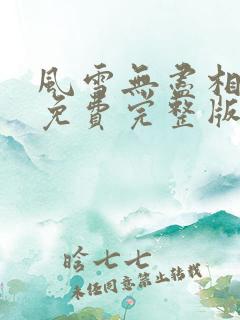 風雪無盡相
免費完整版
晗七七
未經同意禁止轉載